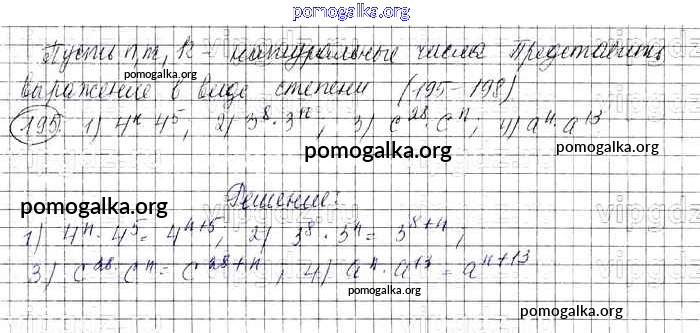 pomogalka.org
Пусть n, m, k - натуральные числа Представить
pomogalka.org
выражение в виде степени (195-198)
195. 1) 4ⁿ·4⁵, 2) 3⁸·3ⁿ; 3) c²⁸·cⁿ; 4) aⁿ·a¹³
pomogalka.org pomogalka.org
Решение:
pomogalka.org
1) 4ⁿ·4⁵=4ⁿ⁺⁵, 2) 3⁸·3ⁿ=3⁸⁺ⁿ;
pomogalka.org
3) c²⁸·cⁿ=c²⁸⁺ⁿ, 4) aⁿ·a¹³=aⁿ⁺¹³
pomogalka.org
pomogalka.org